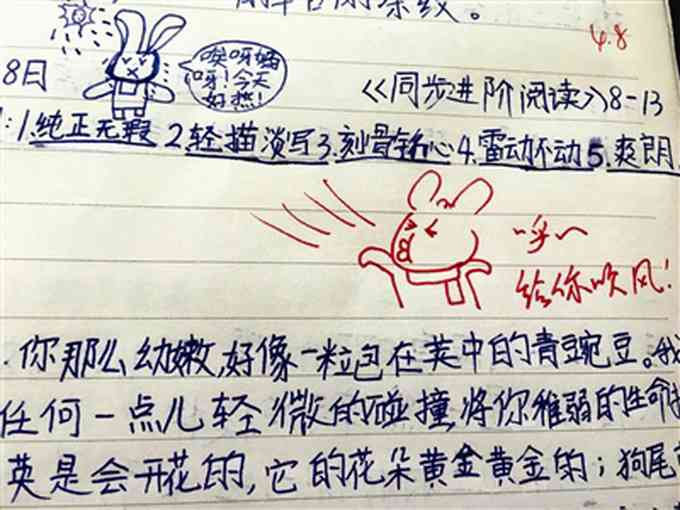 线。
4.8
8日
唉呀妈
呀!今天
好热!
《同步进阶阅读》8-13
:1.纯正无瑕 2轻描淡写3.刻骨铭心4.雷动不动5.爽朗
呼~
给你吹风!
你那么幼嫩,好像一粒包在荚中的青豌豆。我
任何一点儿轻微的碰撞,将你稚弱的生命
英是会开花的,它的花朵黄金黄金的;狗尾